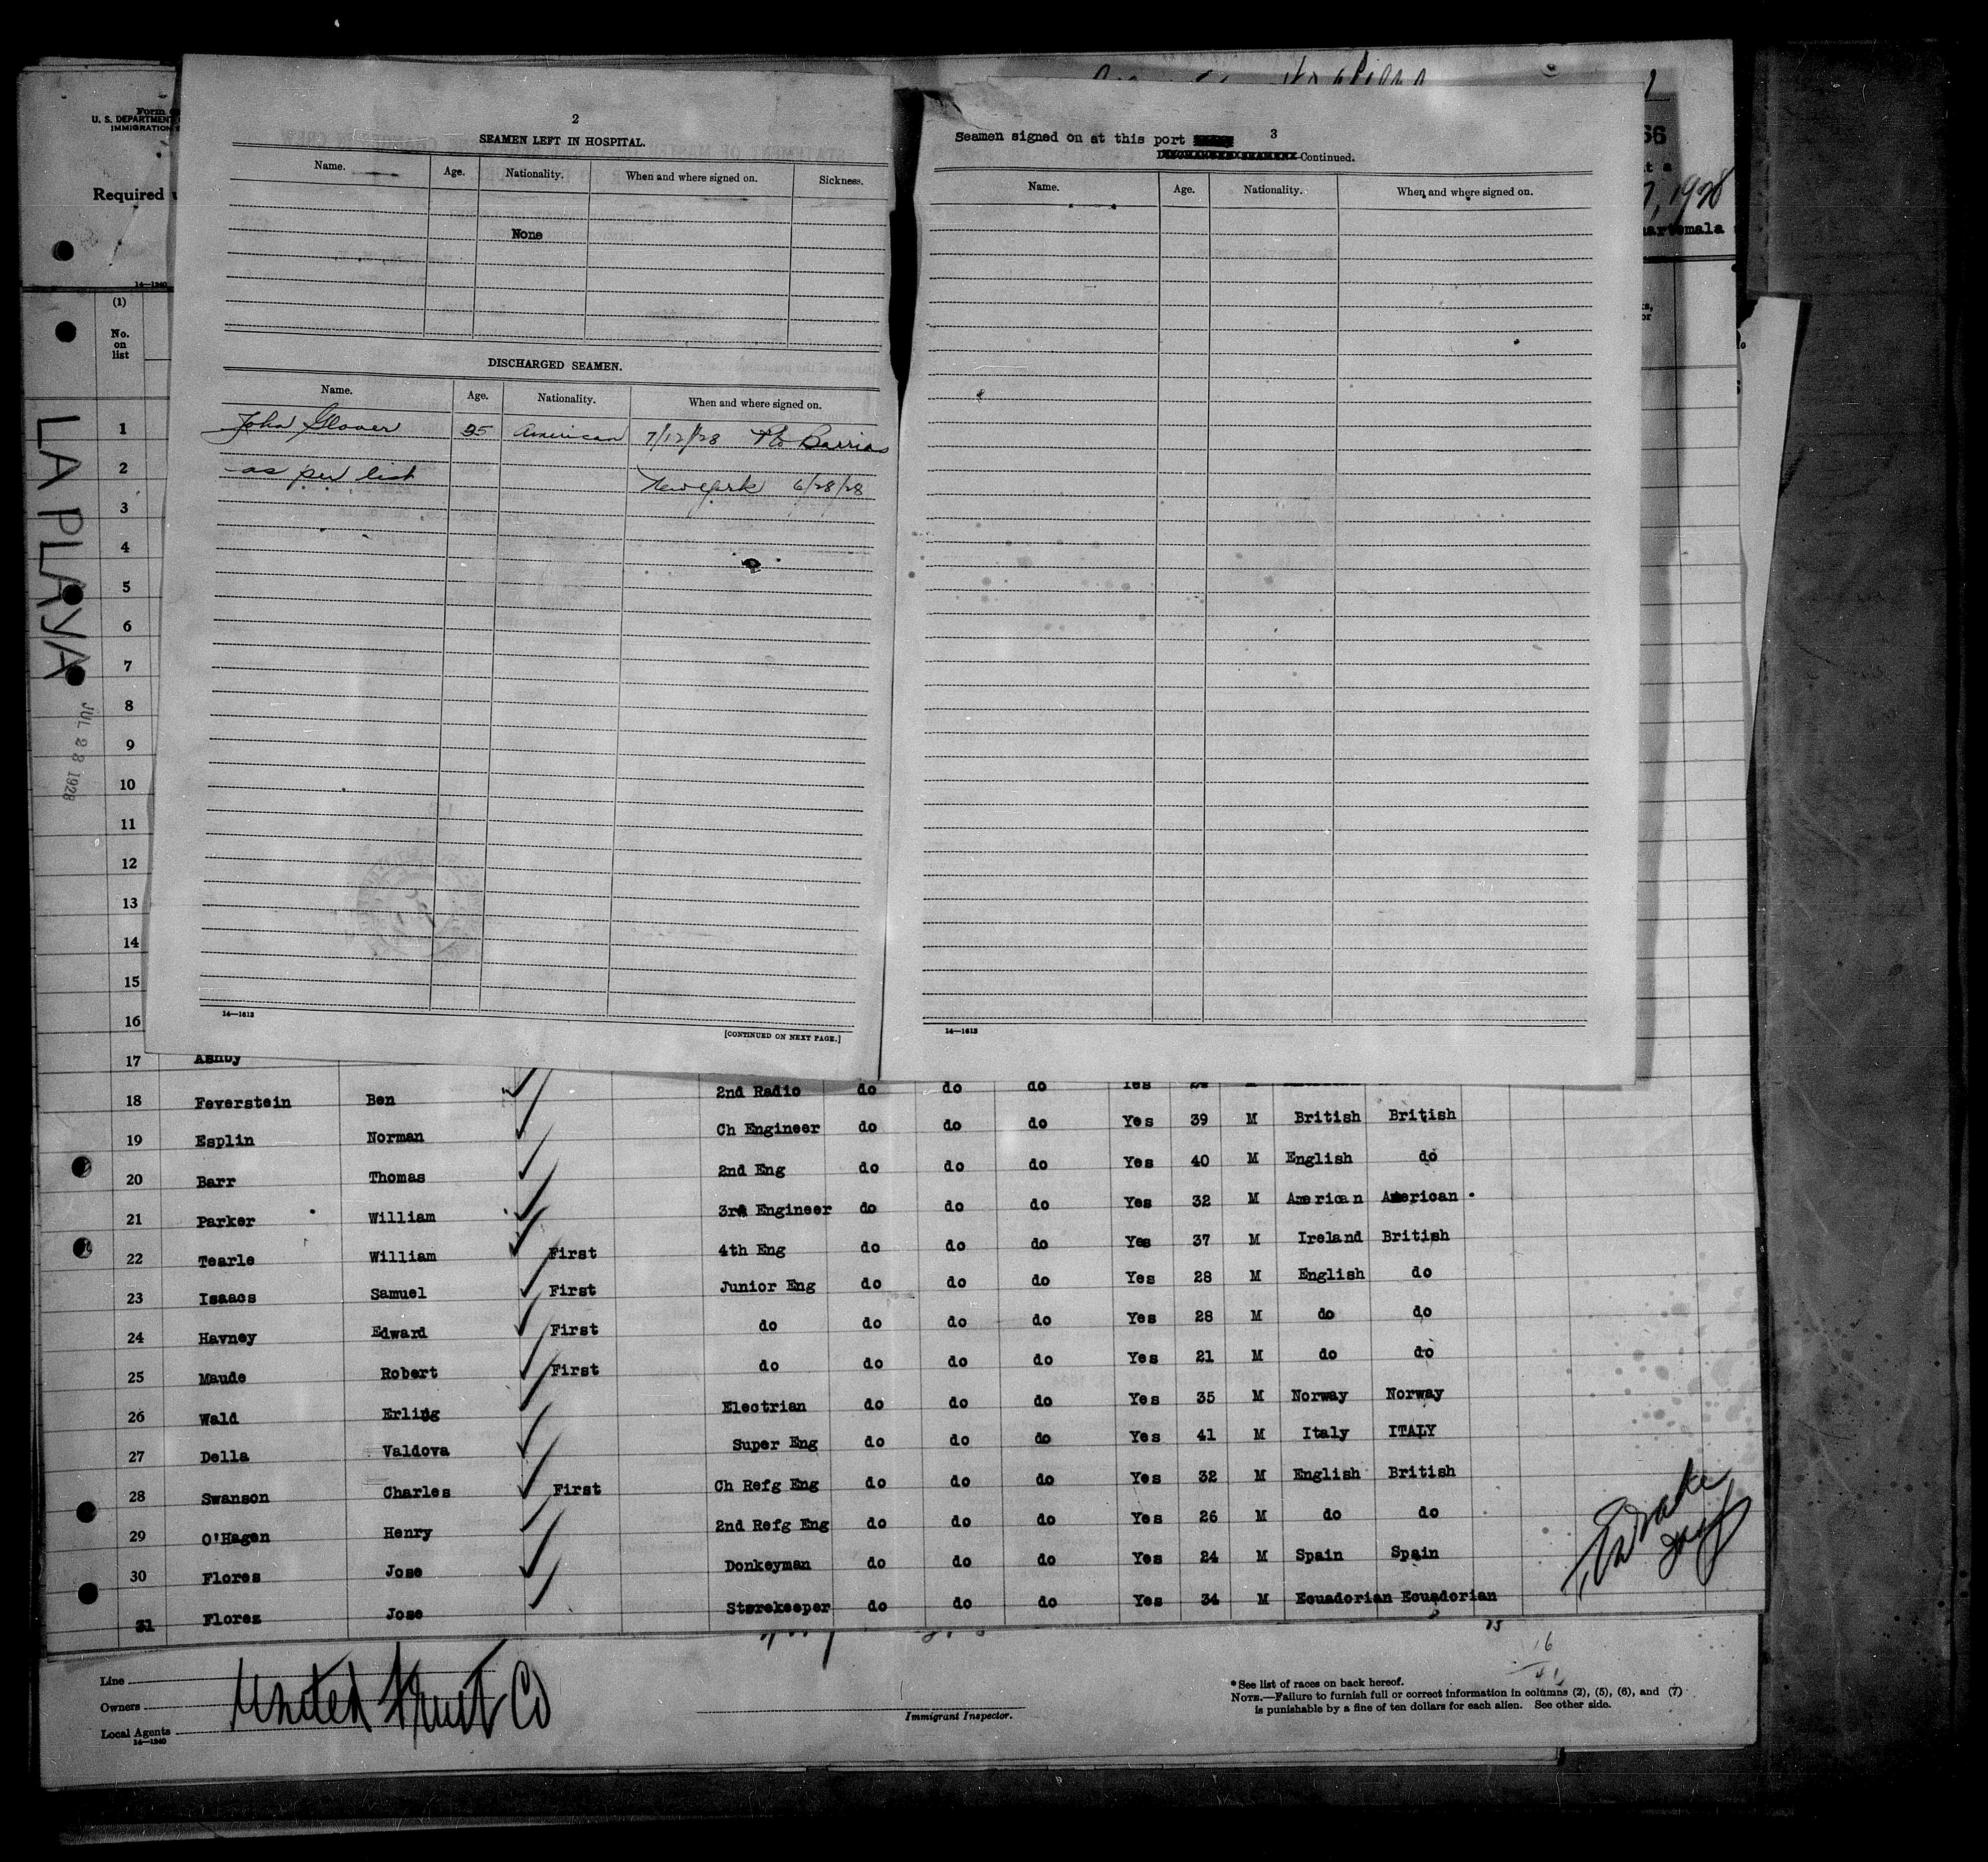 Form
U. S. DEPARTMENT
IMMIGRATION
Required
14—1240
(1)
No.
on
list
LA PLAYA
JUL 28 1928
2
SEAMEN LEFT IN HOSPITAL.
Name. Age. Nationality. When and where signed on. Sickness.
None
DISCHARGED SEAMEN.
Name. Age. Nationality. When and where signed on.
John Glover 35 American 7/12/28 Pto Barrios
as per list New York 6/28/28
14—1613
[CONTINUED ON NEXT PAGE.]
3
Seamen signed on at this port
Continued.
Name. Age. Nationality. When and where signed on.
14—1613
66
t a
7, 1928
uartemala
1
2
3
4
5
6
7
8
9
10
11
12
13
14
15
16
17 Ashby
18 Feverstein Ben 2nd Radio do do do Yes
19 Esplin Norman Ch Engineer do do do Yes 39 M British British
20 Barr Thomas 2nd Eng do do do Yes 40 M English do
21 Parker William 3rd Engineer do do do Yes 32 M American American
22 Tearle William First 4th Eng do do do Yes 37 M Ireland British
23 Isaacs Samuel First Junior Eng do do do Yes 28 M English do
24 Havney Edward First do do do do Yes 28 M do do
25 Maude Robert First do do do do Yes 21 M do do
26 Wald Erling Electrian do do do Yes 35 M Norway Norway
27 Della Valdova Super Eng do do do Yes 41 M Italy ITALY
28 Swanson Charles First Ch Refg Eng do do do Yes 32 M English British
29 O'Hagen Henry 2nd Refg Eng do do do Yes 26 M do do
30 Flores Jose Donkeyman do do do Yes 24 M Spain Spain
31 Florez Jose Storekeeper do do do Yes 34 M Ecuadorian Ecuadorian
Line
Owners United Fruit Co
Local Agents
14—1240
Immigrant Inspector.
16
* See list of races on back hereof.
NOTE.—Failure to furnish full or correct information in columns (2), (5), (6), and (7)
is punishable by a fine of ten dollars for each alien. See other side.